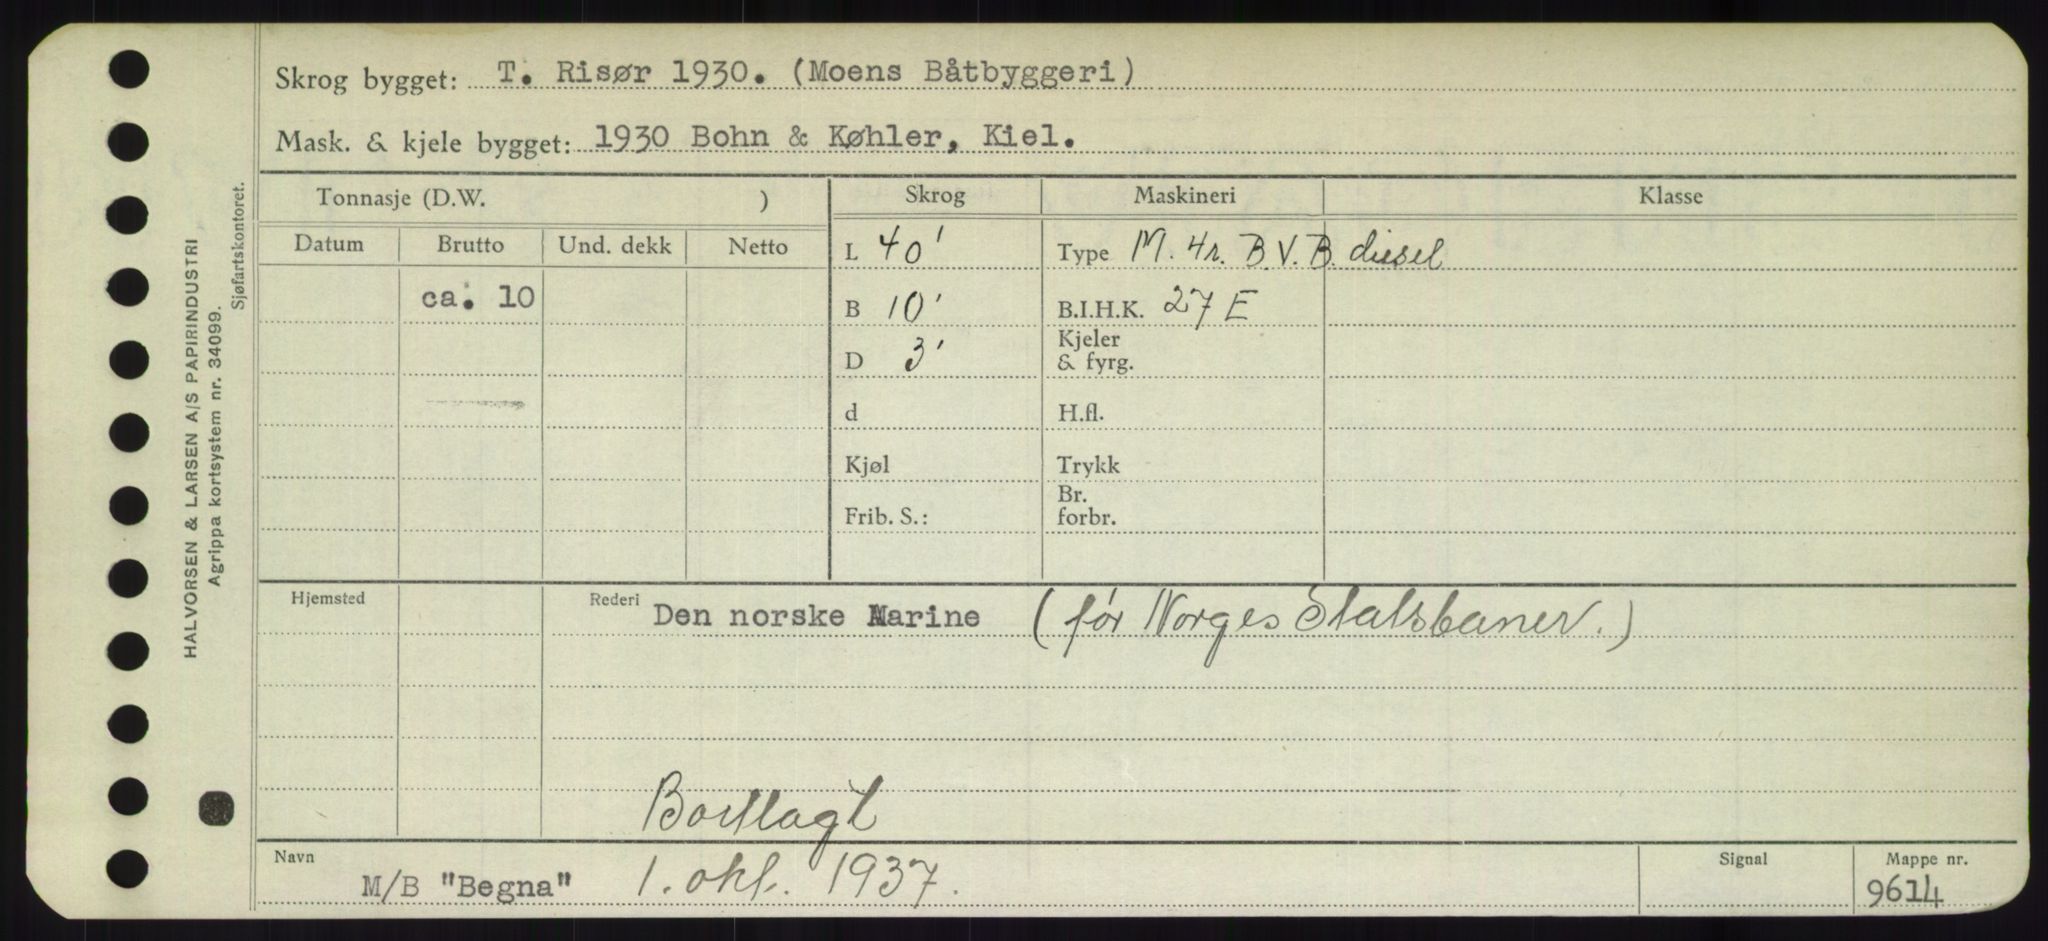 Skrog bygget: T. Risør 1930. (Moens Båtbyggeri)
Mask. & kjele bygget: 1930 Bohn & Køhler, Kiel.
Tonnasje (D.W. ) Skrog Maskineri Klasse
Datum Brutto Und. dekk Netto L 40' Type M. 4r. B.V.B. diesel
ca. 10 B 10' B.I.H.K. 27 E
D 3' Kjeler
& fyrg.
d H.fl.
Kjøl Trykk
Br.
Frib. S.: forbr.
Hjemsted Rederi Den norske Marine (før Norges Statsbaner.)
Bortlagt
Navn M/B "Begna" 1. okt. 1937. Signal Mappe nr.
9614
HALVORSEN & LARSEN A/S PAPIRINDUSTRI
Agrippa kortsystem nr. 34099.
Sjøfartskontoret.